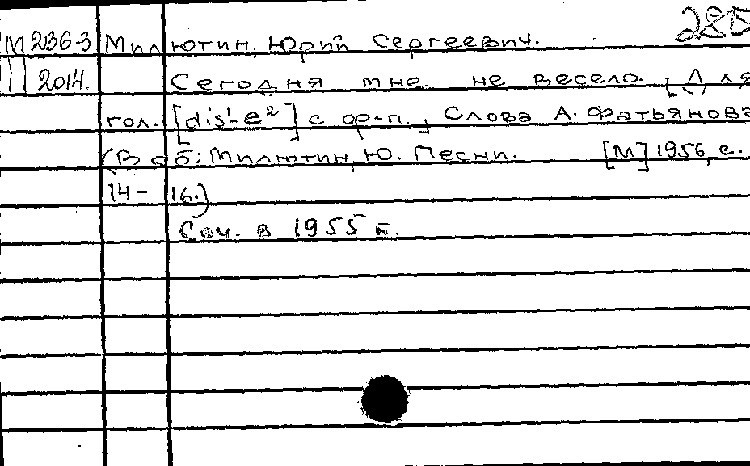 285
М 236-3 Милютин, Юрий Сергеевич.
III 2014. Сегодня мне не весело. [Для
гол. [dis¹-e²] с ф-п., Слова А. Фатьянова
(В сб: Милютин, Ю. Песни. [М] 1956, с.
14-16.)
Соч. в 1955 г.